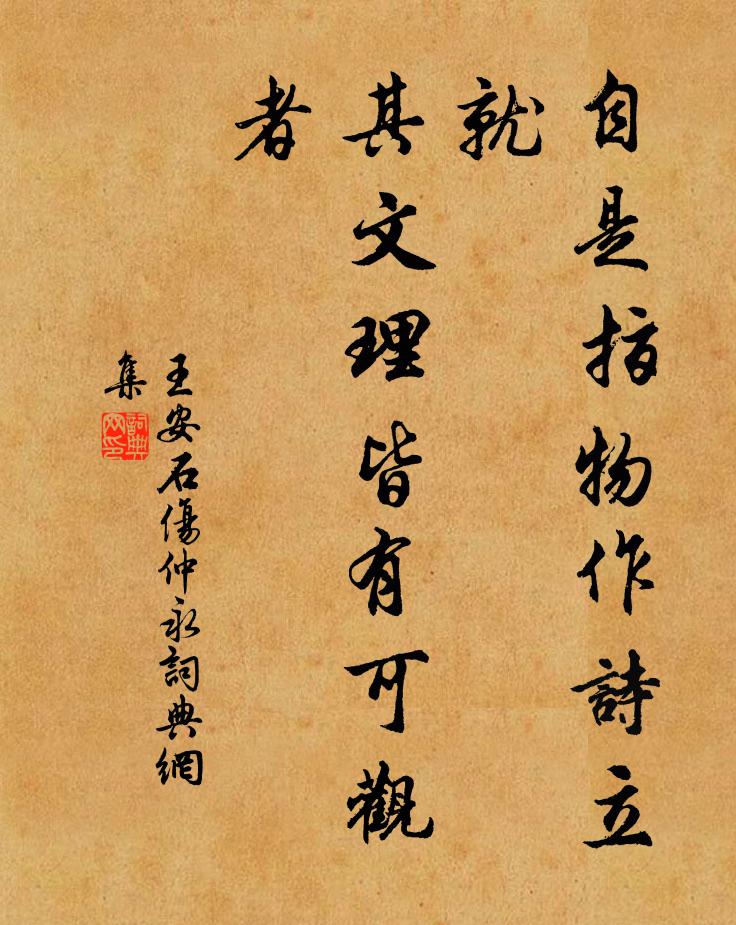 自是指物作詩立
就
其文理皆有可觀
者
王安石傷仲永詞典網
集
詞典
网印